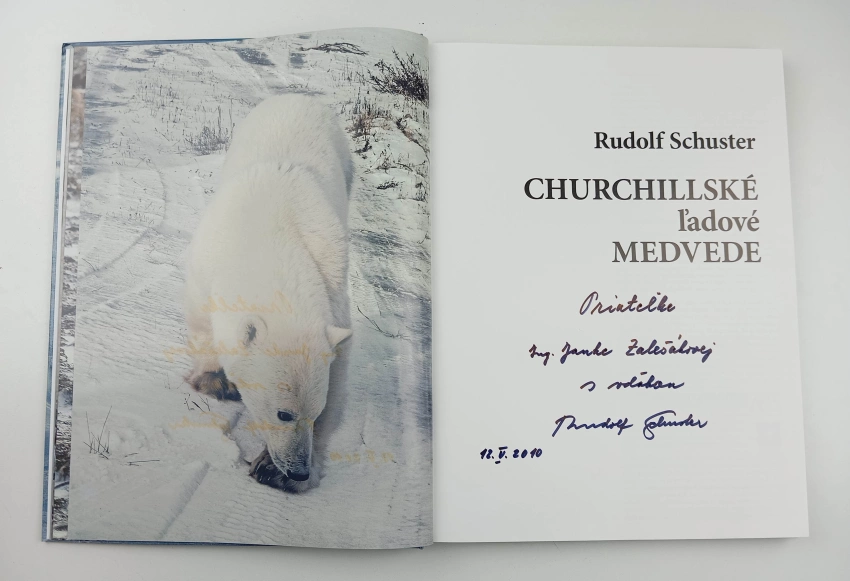 Rudolf Schuster
CHURCHILLSKÉ
ľadové
MEDVEDE
Priateľke
Ing. Janke Zalešákovej
s vďakou
Rudolf Schuster
12. V. 2010